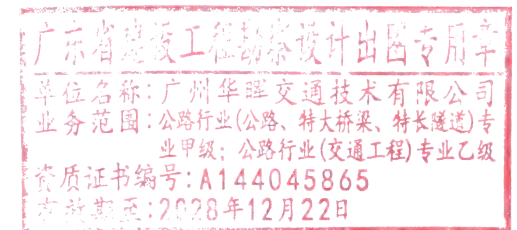 广东省建设工程勘察设计出图专用章
单位名称:广州华晖交通技术有限公司
业务范围:公路行业(公路、特大桥梁、特长隧道)专
业甲级;公路行业(交通工程)专业乙级
资质证书编号:A144045865
有效期至:2028年12月22日